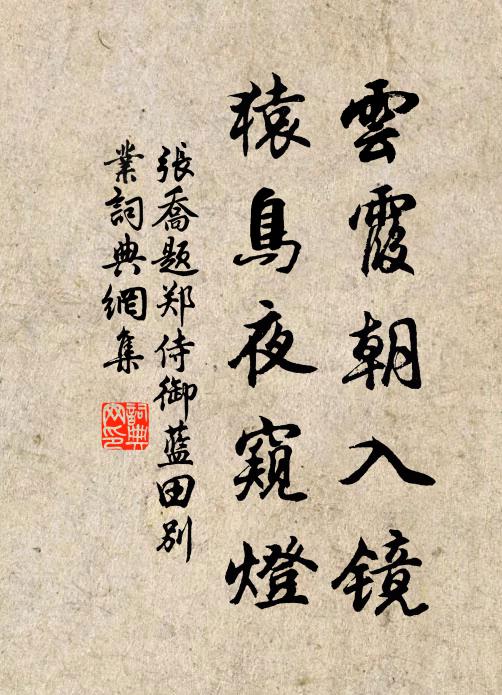 雲霞朝入镜
猿鳥夜窺燈
張喬题郑侍御藍田别
業詞典網集
詞典
网印